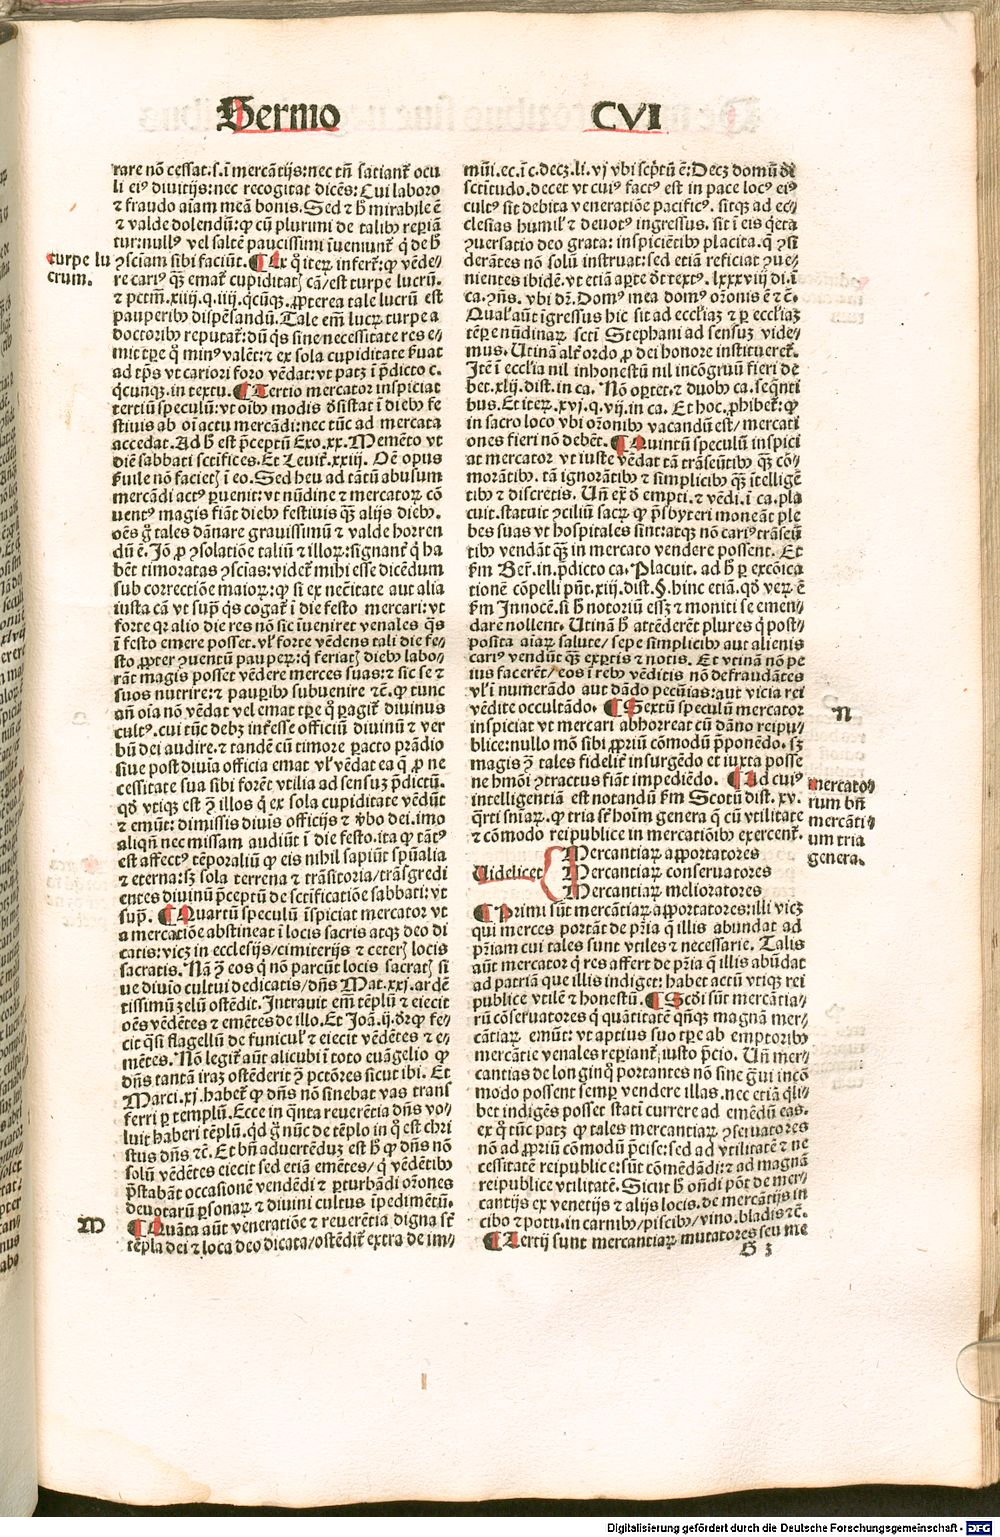 Sermo CVI
rare nō cessat.s.ī mercātijs:nec tn̄ satiant᷑ ocu
li eiꝰ diuitijs:nec recogitat dicēs: Cui laboro
⁊ fraudo aīam meā bonis. Sed ⁊ h̄ mirabile ē
⁊ valde dolendū: ꝙ cū plurimi de talibꝰ reperiā
tur:nullꝰ vel saltē paucissimi īueniunt᷑ q̇ de h̄
turpe lu
crum.
ꝯsciam sibi faciūt. ¶ Ex q̇ iteꝝ infert᷑: ꝙ vēde-
re cariꝰ qꝫ emat᷑ cupiditatꝭ cā/est turpe lucrū.
⁊ petim̄.xiiij.q.iiij.qcūqꝫ. ꝓpterea tale lucrū est
pauperibꝰ dispēsandū. Tale em̄ lucꝝ turpe a
doctoribꝰ reputat᷑: dū q̇s sine necessitate res e-
mit tꝑe q̇ minꝰ valēt: ⁊ ex sola cupiditate ẜuat
ad tp̄s vt cariori foro vēdat: vt patꝫ ī p̄dicto c.
q̇cunqꝫ. in textu. ¶ Tertio mercator inspiciat
tertiū speculū: vt oībꝰ modis d̄sistat ī diebꝰ fe
stiuis ab oī actu mercādi: nec tūc ad mercata
accedat. Ad h̄ est p̄ceptū Exo.xx. Memēto vt
diē sabbati sctīfices. Et Leuit᷑.xxiij. Oē opus
ẜuile nō facietꝭ ī eo. Sed heu ad tātū abusum
mercādi actꝰ ꝑuenit: vt nūdine ⁊ mercatoꝝ cō
uentꝰ magis fiāt diebꝰ festiuis qꝫ alijs diebꝰ.
oēs g̊ tales dānare grauissimū ⁊ valde horren
dū ē. Iō ꝓ ꝯsolatiōe taliū ⁊ illoꝝ: signant᷑ q̇ ha
bēt timoratas ꝯscias: videt᷑ mihi esse dicēdum
sub correctiōe maioꝝ: ꝙ si ex necītate aut alia
iusta cā vt sup̄ q̇s cogat᷑ ī die festo mercari: vt
forte qꝛ alio die res nō sic īueniret venales q̇s
ī festo emere posset. vl᷑ forte vēdens tali die fe-
sto ꝓpter ꝯuentū pauperꝝ: q̇ feriatꝭ diebꝰ labo-
rāt magis posset vēdere merces suas: ⁊ sic se ⁊
suos nutrire: ⁊ pauꝑibꝰ subuenire ⁊c̄. ꝙ tunc
an̄ oīa nō vēdat vel emat tꝑe q̇ ꝑagit᷑ diuinus
cultꝰ. cui tūc debꝫ inter᷑esse officiū diuinū ⁊ ver
bū dei audire. ⁊ tandē cū timore ꝑacto prādio
siue post diuīa officia emat vl᷑ vēdat ea q̄ ꝓ ne
cessitate sua sibi forēt vtilia ad sensuꝫ p̄dictū.
qd̄ vtiqꝫ est ꝯ̄ illos q̇ ex sola cupiditate vēdūt
⁊ emūt: dimissis diuīs officijs ⁊ v̄bo dei. imo
aliqn̄ nec missam audiūt ī die festo. ita ꝙ tātꝰ
est affectꝰ tēporaliū ꝙ eis nihil sapiūt sp̄ualia
⁊ eterna: sꝫ sola terrena ⁊ trāsitoria/trāsgredi
entes diuinū p̄ceptū de sctīficatiōe sabbati: vt
sup̄. ¶ Quartū speculū īspiciat mercator vt
a mercatiōe abstineat ī locis sacris atqꝫ deo di
catis: vicꝫ in ecclesijs/cimiterijs ⁊ ceterꝭ locis
sacratis. Nā ꝯ̄ eos q̇ nō parcūt locis sacratꝭ si
ue diuīo cultui dedicatis/dn̄s Mat.xxj. ardē
tissimū zelū ostēdit. Intrauit em̄ tēplū ⁊ eiecit
oēs vēdētes ⁊ emētes de illo. Et Joā.ij. d͛r ꝙ fe-
cit q̇si flagellū de funiculꝭ ⁊ eiecit vēdētes ⁊ e-
mētes. Nō legit᷑ aūt alicubi ī toto euāgelio ꝙ
dn̄s tantā iraꝫ ostēderit ꝯ̄ pctōres sicut ibi. Et
Marci.xj. habet᷑ ꝙ dn̄s nō sinebat vas trans
ferri ꝑ templū. Ecce in q̇nta reuerētia dn̄s vo-
luit haberi tēplū. qd g̊ nūc de tēplo in q̇ est chri
stus dn̄s ⁊c̄. Et bn̄ aduertēduꝫ est h̄ ꝙ dn̄s nō
solū vēdētes eiecit sed etiā emētes/q̇ vēdētibꝰ
p̄stabāt occasionē vendēdi ⁊ ꝑturbādi or̄ones
deuotarū ꝑsonaꝝ ⁊ diuini cultus īpedimētū.
M
¶ Quāta aūt veneratiōe ⁊ reuerētia digna sūt
tēpla dei ⁊ loca deo dicata/ostēdit᷑ extra de im-
mūi.ec.ī c. decꝫ.li.vj vbi sc̄ptū ē: Decꝫ domū dei
sctītudo. decet vt cuiꝰ factꝰ est in pace locꝰ eiꝰ
cultꝰ sit debita veneratiōe pacificꝰ. sitqꝫ ad ec-
clesias humil᷑ ⁊ deuotꝰ ingressus. sit ī eis q̇eta
ꝯuersatio deo grata: inspiciētibꝰ placita. q̄ ꝯsi
derātes nō solū instruat: sed etiā reficiat ꝯue-
nientes ibidē. vt etiā aꝑte d͛t textꝰ. lxxxviij di. ī
ca. ꝯn̄s. vbi dr̄. Domꝰ mea domꝰ or̄onis ē ⁊c̄.
Qual᷑ aūt īgressus hic sit ad ecc̄liaꝫ ⁊ ꝑ ecc̄liaꝫ
tēꝑe nūdinaꝝ scti Stephani ad sensuꝫ vide-
mus. Utinā alr̄ ordo ꝓ dei honore institueret᷑.
Itē ī ecc̄lia nil inhonestū nil incōgruū fieri de
bet. xlij. dist. in ca. Nō oꝑtet. ⁊ duobꝰ ca. seq̇nti
bus. Et iteꝝ. xvj. q. vij. in ca. Et hoc. ꝓhibet᷑: ꝙ
in sacro loco vbi or̄onibꝰ vacandū est/mercati
ones fieri nō debēt. ¶ Quintū speculū inspici
at mercator vt iuste vēdat tā trāseūtibꝰ qꝫ cō-
morātibꝰ. tā ignorātibꝰ ⁊ simplicibꝰ qꝫ ītelligē
tibꝰ ⁊ discretis. Un̄ ex̄ d̄ empti. ⁊ vēdi. ī ca. pla
cuit. statuit ꝯciliū sacꝝ ꝙ p̄sbyteri moneāt ple
bes suas vt hospitales sint: atqꝫ nō cariꝰ trāseū
tibꝰ vendāt qꝫ in mercato vendere possent. Et
ẜm Ber̄. in. p̄dicto ca. Placuit. ad h̄ ꝑ excōica
tionē cōpelli pn̄t. xiij. dist. §. hinc etiā. qd̄ veꝝ ē
ẜm Innocē. si h̄ notoriū essꝫ ⁊ moniti se emen-
dare nollent. Utinā h̄ attēderēt plures q̇ post-
posita aīaꝝ salute/sepe simplicibꝰ aut alienis
cariꝰ vendūt qꝫ exꝑtis ⁊ notis. Et vtinā nō pe
ius facerēt/eos ī rebꝰ vēditis nō defraudātes
vl᷑ ī numerādo aut dādo pecūias: aut vicia rei
vēdite occultādo. ¶ Sextū speculū mercator
N
inspiciat vt mercari abhorreat cū dāno reipu-
blice: nullo mō sibi ꝓpriū cōmodū p̄ponēdo. sꝫ
magis ꝯ̄ tales fidelit᷑ insurgēdo et iuxta posse
ne hm̄oi ꝯtractus fiāt impediēdo. ¶ Ad cuiꝰ
mercato-
rum bn̄
mercāti-
um tria
genera.
intelligentiā est notandū ẜm Scotū dist. xv.
q̇rti sn̄iaꝝ. ꝙ tria sūt hoīm genera q̄ cū vtilitate
⁊ cōmodo reipublice in mercatiōibꝰ exercent᷑.
Mercantiaꝝ apportatores
Uidelicet Mercantiaꝝ conseruatores
Mercantiaꝝ melioratores
¶ Primi sūt mercātiaꝝ apportatores: illi vicꝫ
qui merces portāt de pr̄ia q̄ illis abundat ad
pr̄iam cui tales sunt vtiles ⁊ necessarie. Talis
aūt mercator q̇ res affert de pr̄ia q̄ illis abūdat
ad patriā que illis indiget: habet actū vtiqꝫ rei
publice vtilē ⁊ honestū. ¶ Scdi sūt mercātia-
rū cōseruatores q̇ quātitatē qn̄qꝫ magnā mer-
cātiaꝝ emūt: vt aptius suo tꝑe ab emptoribꝰ
mercātie venales reꝑiant᷑ iusto p̄cio. Un̄ mer-
cantias de longinqͦ portantes nō sine g̊ui incō
modo possent semꝑ vendere illas. nec etiā q̇li-
bet indigēs posset statī currere ad emēdū eas.
ex q̇ tūc patꝫ ꝙ tales mercantiaꝝ ꝯseruatores
nō ad ꝓpriū cōmodū p̄cise: sed ad vtilitatē ⁊ ne
cessitatē reipublice: sūt cōmēdādi: ⁊ ad magnā
reipublice vtilitatē. Sicut h̄ on̄di pōt de mer-
cantijs ex venetijs ⁊ alijs locis. de mercātijs in
cibo ⁊ potu. in carnibꝰ/piscibꝰ/vino. bladis ⁊c̄.
¶ Tertij sunt mercantiaꝝ mutatores seu me
G 3
Digitalisierung gefördert durch die Deutsche Forschungsgemeinschaft - DFG